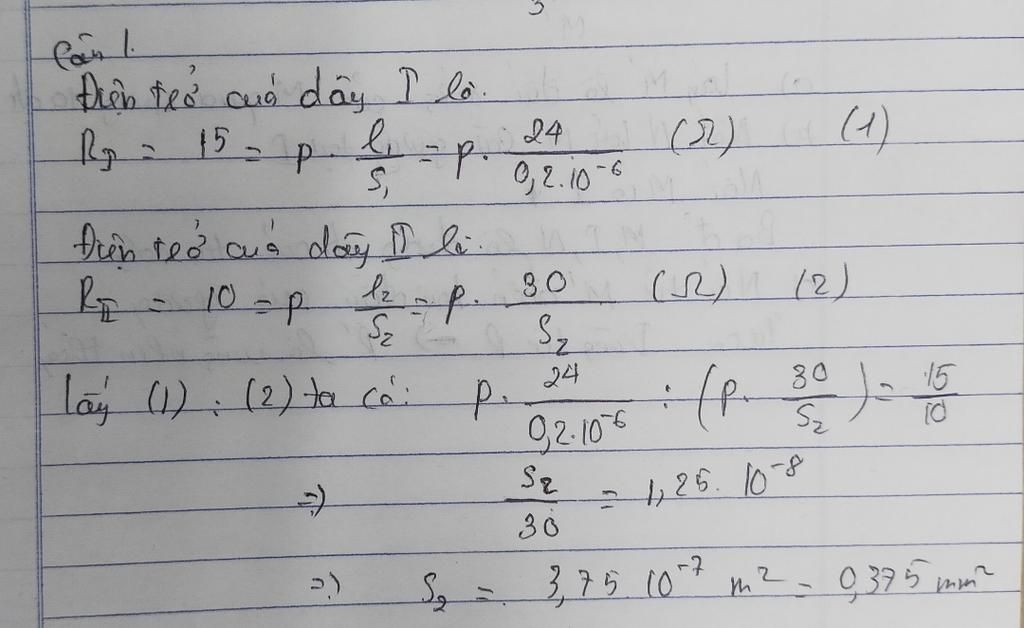 Câu 1.
Điện trở của dây I là.
R_I = 15 = p . l₁/S₁ = p . 24/0,2.10⁻⁶ (Ω) (1)
Điện trở của dây II là.
R_II = 10 = p . l₂/S₂ = p . 30/S₂ (Ω) (2)
lấy (1) : (2) ta có: p . 24/0,2.10⁻⁶ : (p . 30/S₂) = 15/10
=) S₂/30 = 1,25 . 10⁻⁸
=) S₂ = 3,75 . 10⁻⁷ m² = 0,375 mm²